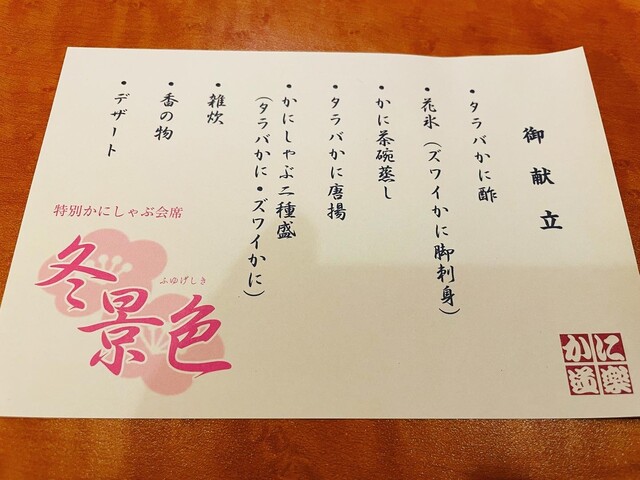 御献立
・タラバかに酢
・花氷（ズワイかに脚刺身）
・かに茶碗蒸し
・タラバかに唐揚
・かにしゃぶ二種盛
（タラバかに・ズワイかに）
・雑炊
・香の物
・デザート
特別かにしゃぶ会席
ふゆげしき
冬景色
かに
道楽